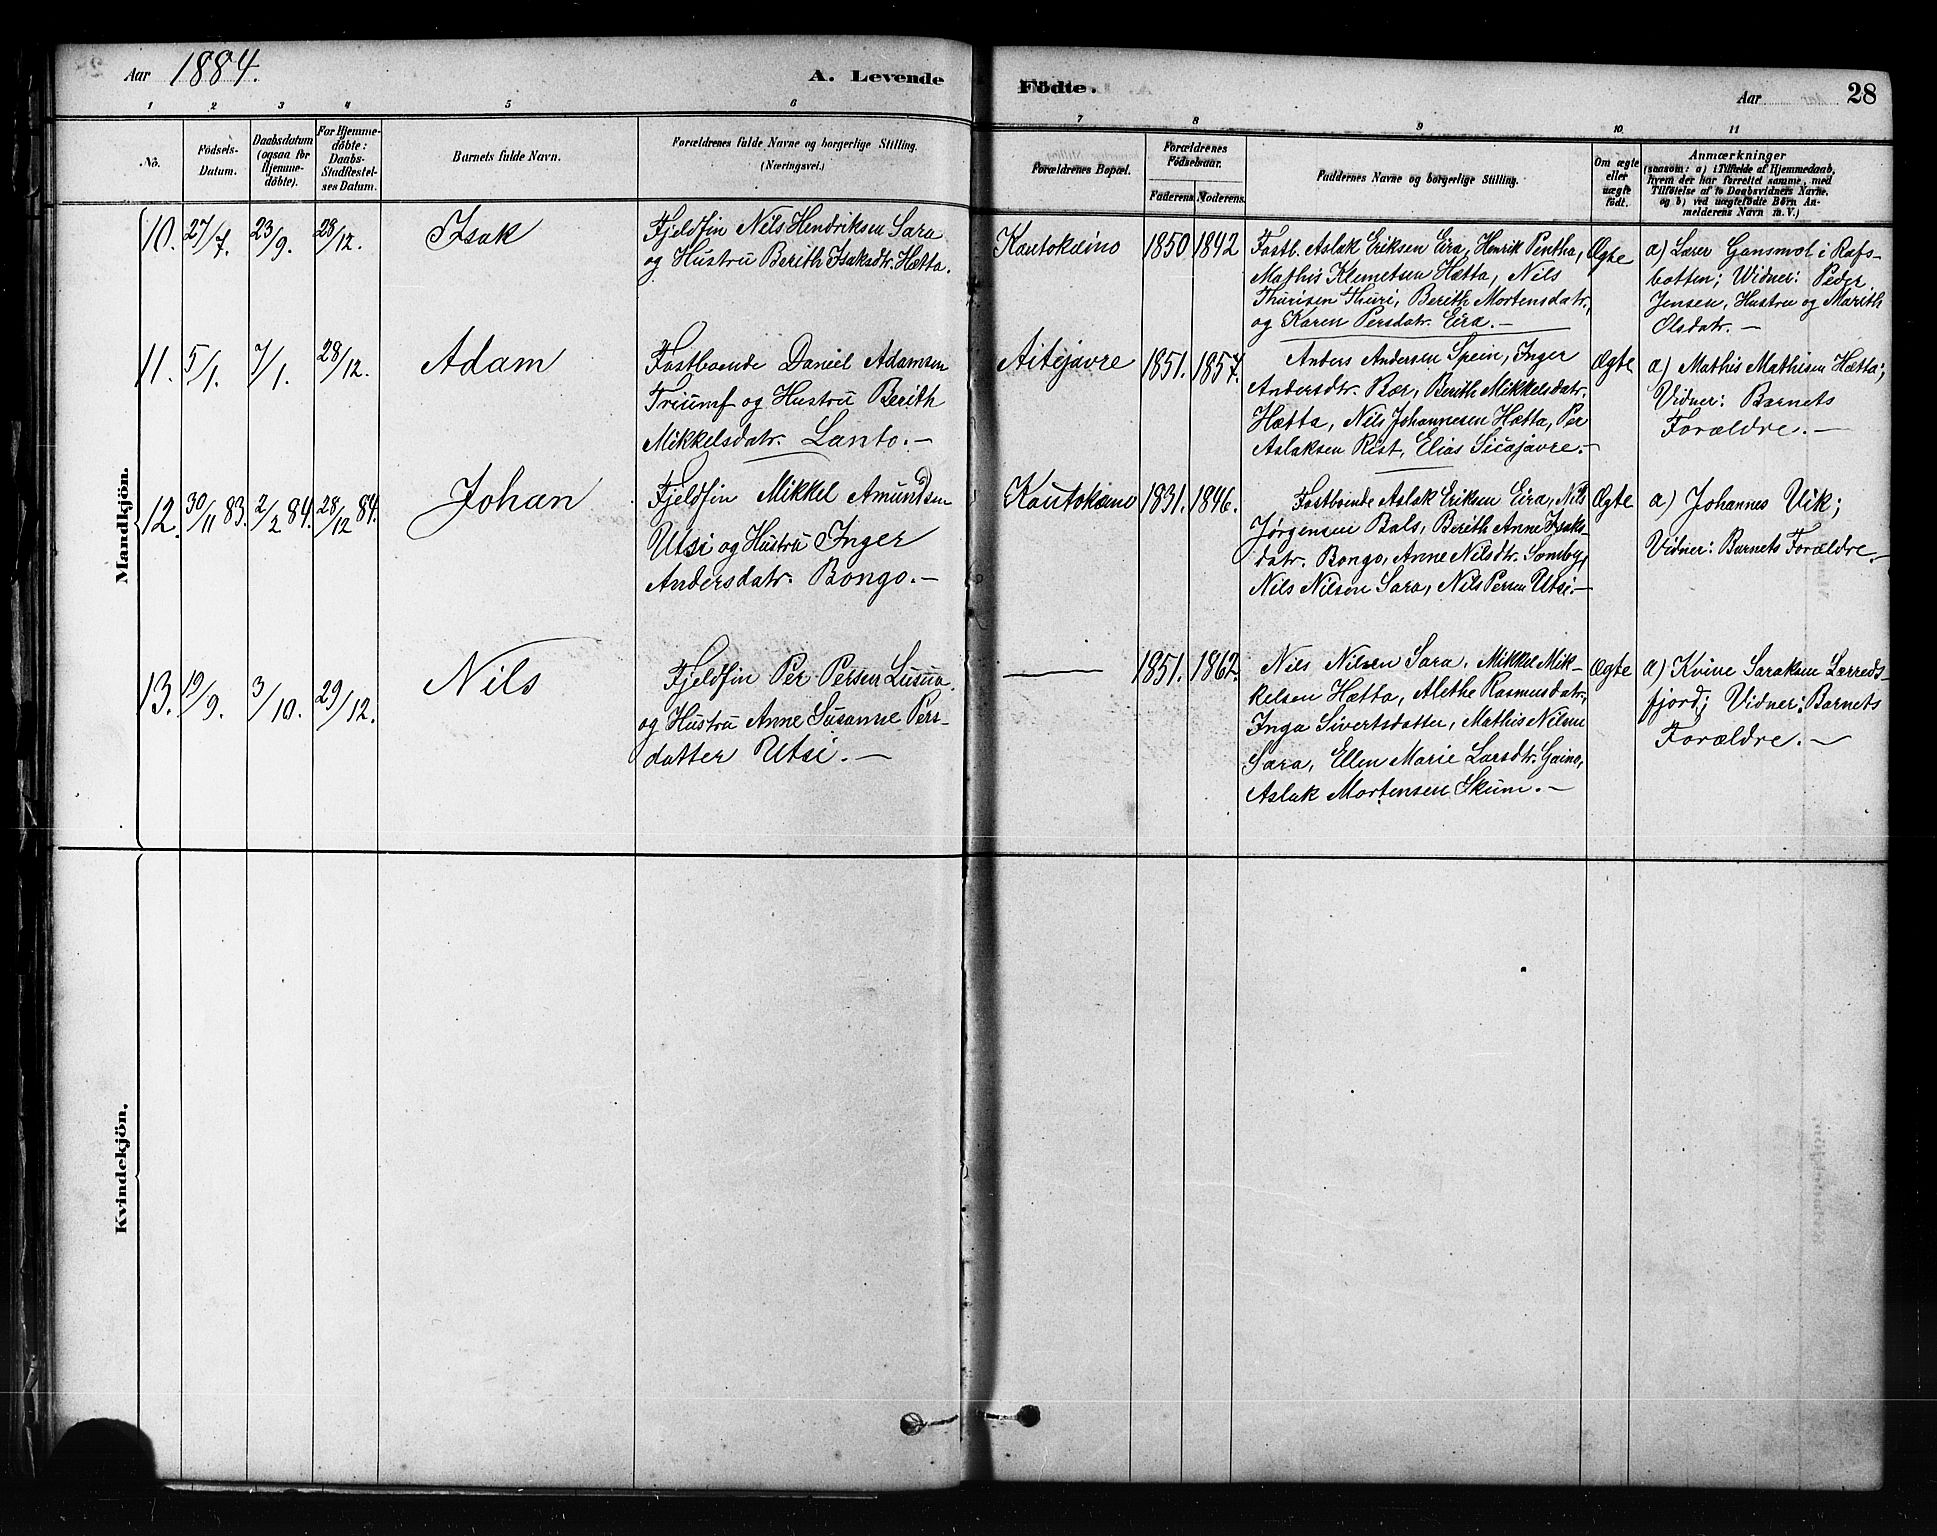 Aar 1884.
A. Levende
Födte.
Aar
28
1 2 3 4 5 6 7 8 9 10 11
No.
Födsels-
Datum.
Daabsdatum
(ogsaa for
Hjemme-
döbte).
For Hjemme-
döbte:
Daabs-
Stadfestel-
ses Datum.
Barnets fulde Navn.
Forældrenes fulde Navne og borgerlige Stilling.
(Næringsvei.)
Forældrenes Bopæl.
Forældrenes
Födselsaar.
Faderens. Moderens.
Faddernes Navne og borgerlige Stilling.
Om ægte
eller
uægte
födt.
Anmærkninger
(saasom: a) i Tilfælde af Hjemmedaab,
hvem der har forrettet samme, med
Tilföielse af to Daabsvidners Navne.
og b) ved uægtefödte Börn An-
melderens Navn m. V.)
Mandkjön.
10. 27/7. 23/9. 28/12. Isak
Fjeldfin Nils Hendriksen Sara
og Hustru Berith Isaksdtr. Hætta.
Kautokæino 1850 1842
Fastb. Aslak Eriksen Eira, Henrik Pentha,
Mathis Klemetsen Hætta, Nils
Thurisen Thuri, Berith Mortensdatr.
og Karen Persdatr. Eira.—
Ægte
a) Lærer Gansmol i Rafs-
botten; Widner: Peder
Jensen, Hustru og Marith
Olsdatr.—
11. 5/1. 7/1. 28/12. Adam
Fastboende Daniel Adamsen
Triumf og Hustru Berith
Mikkelsdatr. Lanto.—
Aitejavre 1851. 1857.
Anders Andersen Spein, Inger
Andersdtr. Bær, Berith Mikkelsdatr.
Hætta, Nils Johannesen Hætta, Per
Aslaksen Rist, Elias Sicajavre.—
Ægte
a) Mathis Mathisen Hætta;
Vidner: Barnets
Forældre.—
12. 30/11 83. 2/2 84. 28/12 84. Johan
Fjeldfin Mikkel Amundsen
Utsi og Hustru Inger
Andersdatr. Bongo.—
Kautokæino 1831. 1846.
Fastboende Aslak Eriksen Eira, Nils
Jørgensen Bals, Berith Anne Isaks-
datr. Bongo, Anne Nilsdtr. Somby,
Nils Nilsen Sara, Nils Persen Utsi.—
Ægte
a) Johannes Vik;
Vidner: Barnets Forældre.—
13. 19/9. 3/10. 29/12. Nils
Fjeldfin Per Persen Lusua
og Hustru Anne Susanne Pers-
datter Utsi.—
— 1851. 1862.
Nils Nilsen Sara, Mikkel Mik-
kelsen Hætta, Alethe Rasmusdatr,
Inga Sivertsdatter, Mathis Nilsen
Sara, Ellen Marie Larsdtr. Gaino,
Aslak Mortensen Skum.—
Ægte
a) Kvine Saraksen Lerreds-
fjord; Vidner: Barnets
Forældre.—
Kvindekjön.